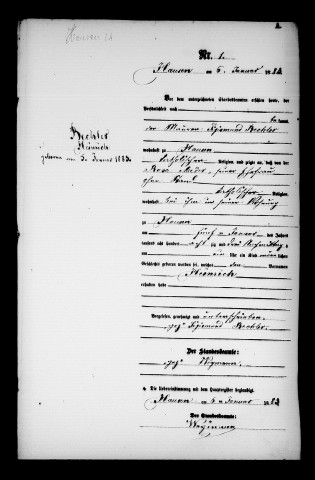 Nr. 1.
Hausen am 6. Januar 1883
Vor dem unterzeichneten Standesbeamten erschien heute, der
Persönlichkeit nach
kannt,
der Maurer Sigmund Bechler
wohnhaft zu Hausen
katholischer Religion, und zeigte an, daß von der
Rosa Meder, seiner Ehefrau
katholischer Religion,
wohnhaft bei ihm in seiner Wohnung
zu Hausen
am fünften Januar des Jahres
tausend acht hundert acht zig drei
um ein Uhr ein Kind männlichen
Geschlechts geboren worden sei, welches den Vornamen
Heinrich
erhalten habe
Bechler
Heinrich
geboren am 5. Januar 1883.
Vorgelesen, genehmigt und unterschrieben
gez. Sigmund Bechler.
Der Standesbeamte:
gez. Wegmann.
Die Uebereinstimmung mit dem Hauptregister beglaubigt
Hausen am 6ten Januar 1883
Der Standesbeamte:
Wegmann